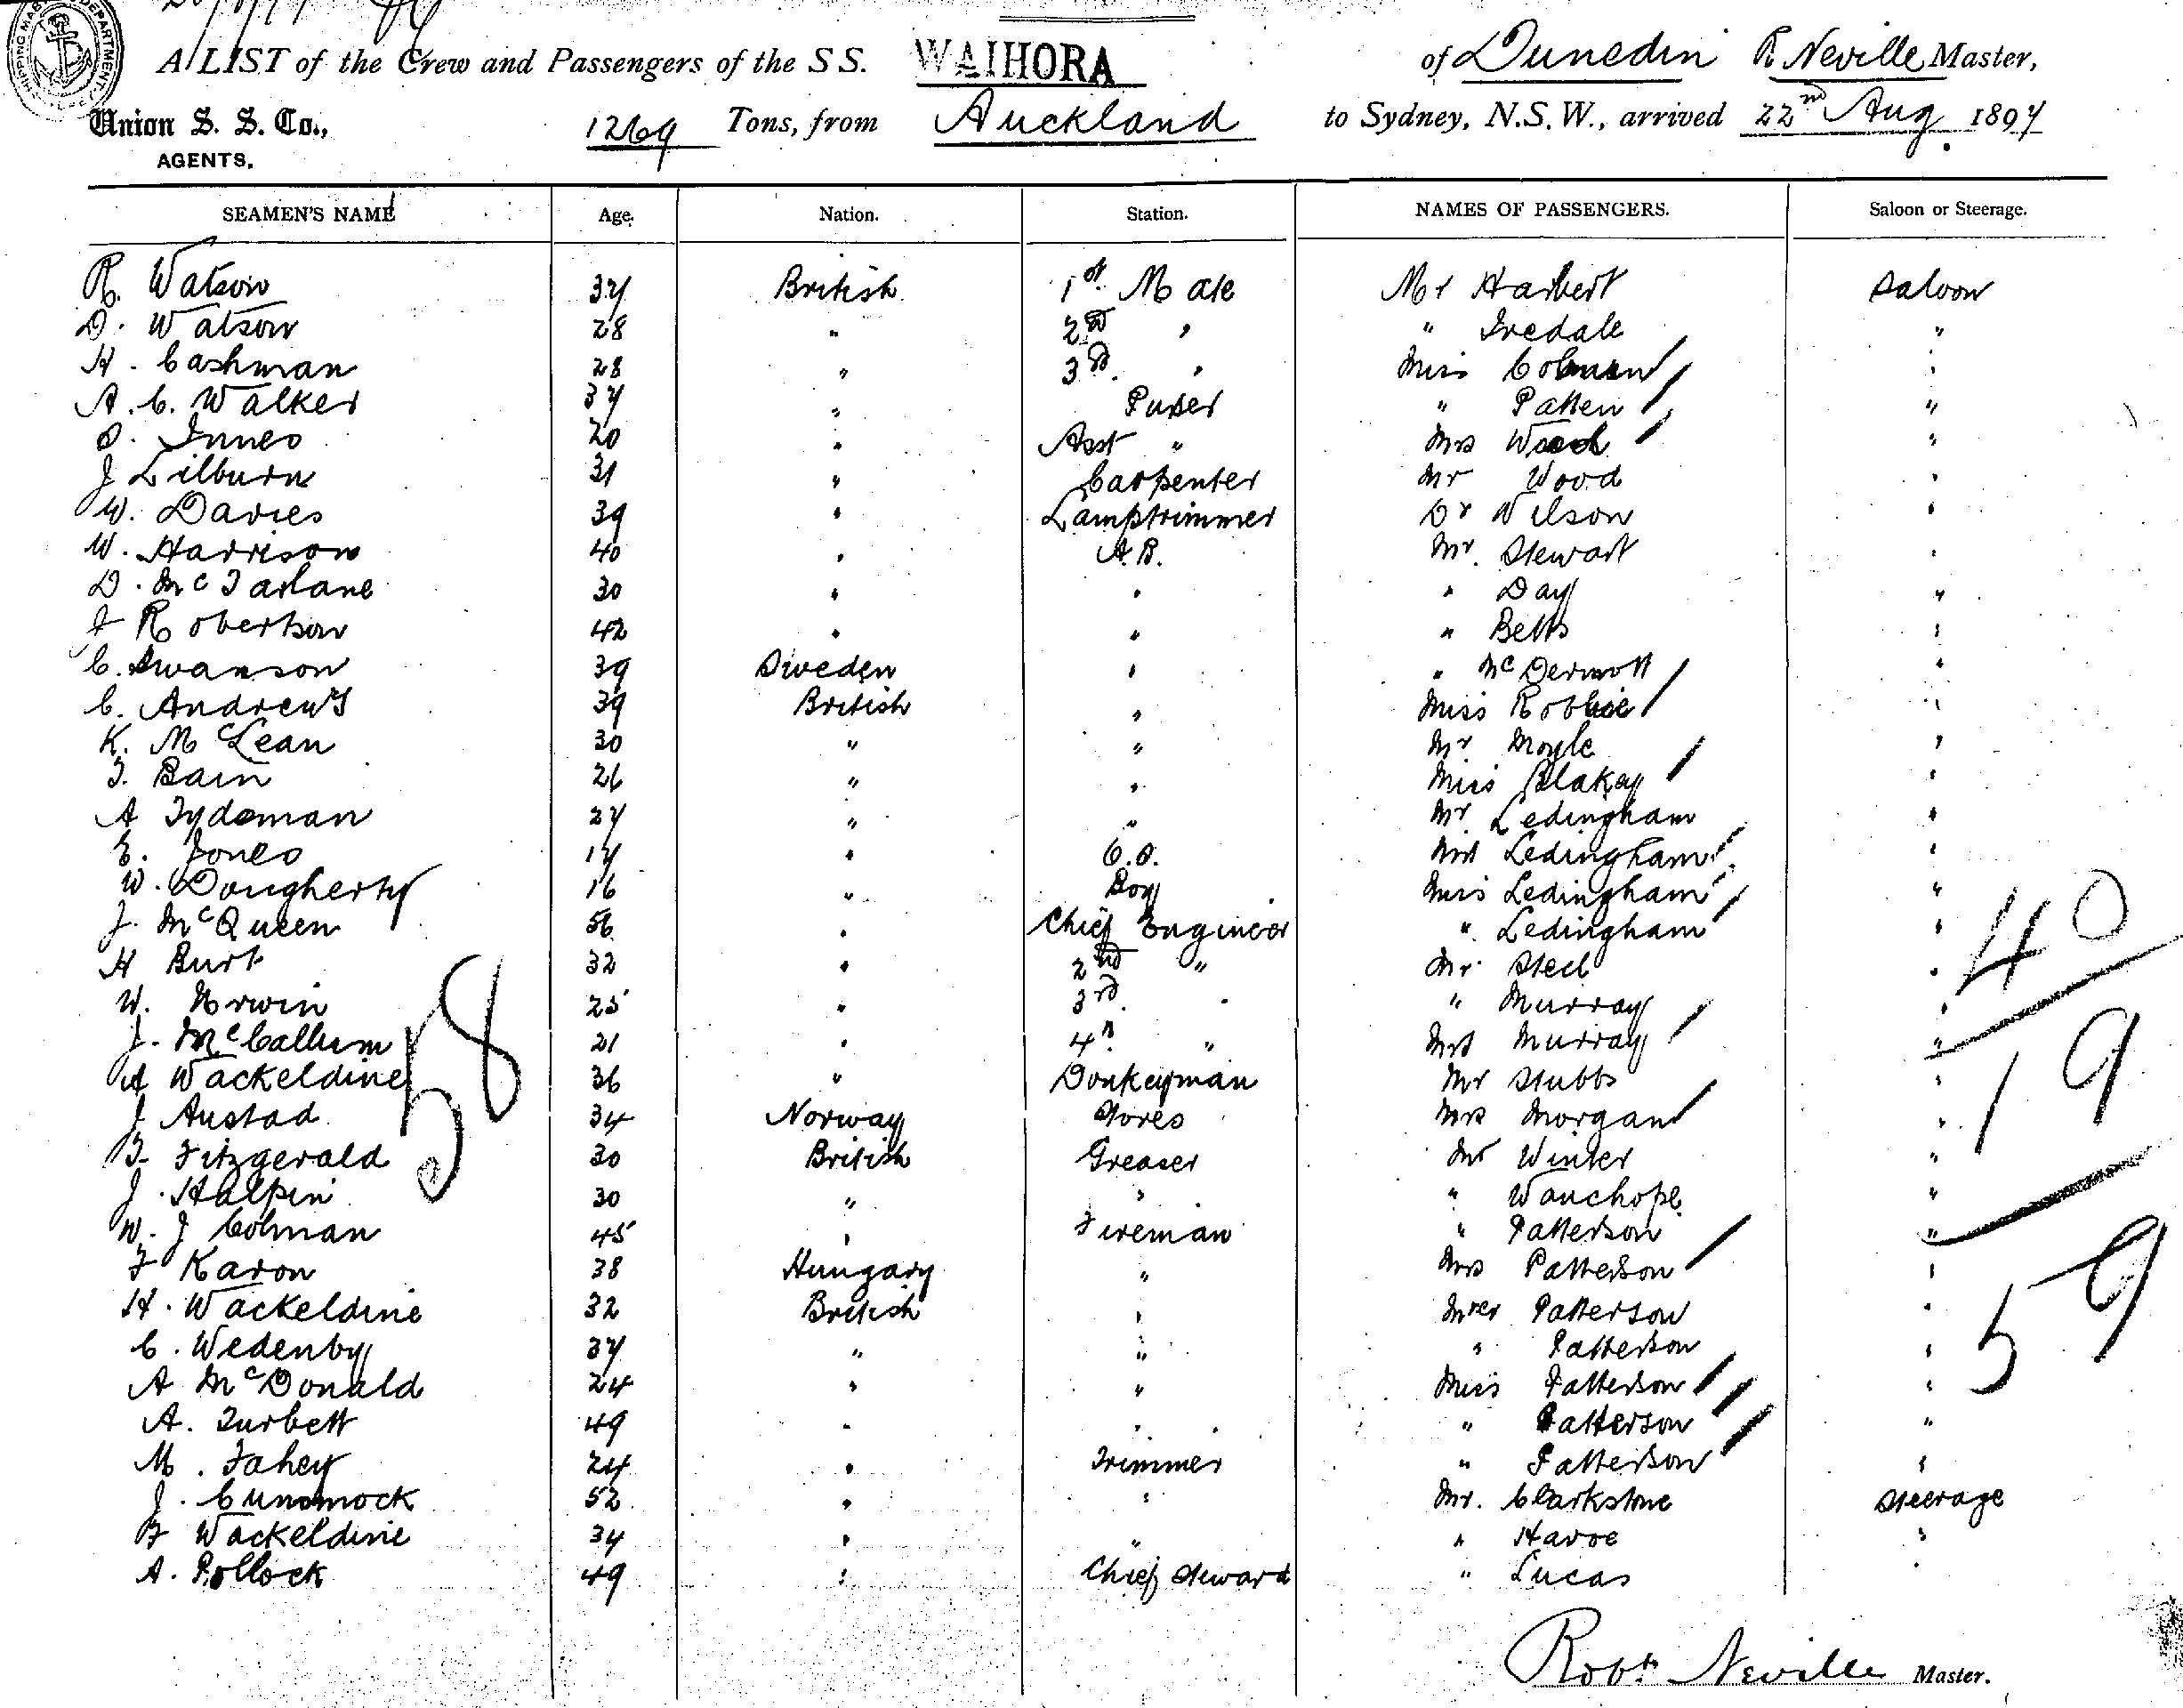 A LIST of the Crew and Passengers of the S S. WAIHORA of Dunedin R Neville Master,
Union S. S. Co., 1269 Tons, from Auckland to Sydney, N.S.W., arrived 22nd Aug 1897
AGENTS.
SEAMEN'S NAME Age. Nation. Station. NAMES OF PASSENGERS. Saloon or Steerage.
R. Watson 37 British 1st Mate Mr Harbert Saloon
D. Watson 28 " 2nd " " Iredale "
H. Cashman 28 " 3rd " Miss Colman "
A. C. Walker 37 " Purser " Patten "
D. Innes 20 " Asst " Mrs Wood "
J Lilburn 31 " Carpenter Mr Wood "
W. Davies 39 " Lamptrimmer Dr Wilson "
W. Harrison 40 " A.B. Mr. Stewart "
D. McFarlane 30 " " " Day "
J Robertson 42 " " " Betts "
C. Swanson 39 Sweden " " McDermott "
C. Andrews 39 British " Miss Robbie "
K. McLean 30 " " Mr Moyle "
J. Bain 26 " " Miss Blakey "
A Tydeman 27 " " Mr Ledingham "
E. Jones 17 " O.S. Mrs Ledingham "
W. Dougherty 16 " Boy Miss Ledingham "
J. McQueen 56 " Chief Engineer " Ledingham "
H Burt 32 " 2nd " Mr Steel "
W. Irwin 25 " 3rd " " Murray "
J. McCallum 21 " 4th " Mrs Murray "
A Wackeldine 36 " Donkeyman Mr Stubbs "
J Austad 34 Norway Stores Mrs Morgan "
Fitzgerald 30 British Greaser Mr Winter "
J. Halpin 30 " " " Wauchope "
W. J Colman 45 " Fireman " Patterson "
F Karon 38 Hungary " Mrs Patterson "
H. Wackeldine 32 British " Mser Patterson "
C. Wedenby 37 " " " Patterson "
A McDonald 24 " " Miss Patterson "
A. Turbett 49 " " " Patterson "
M. Fahey 24 " Trimmer " Patterson "
J. 52 " " Mr. Clarkstone Steerage
F Wackeldine 34 " " " Havoe "
A. Pollock 49 " Chief Steward " Lucas "
58
40
19
59
Robt. Neville Master.